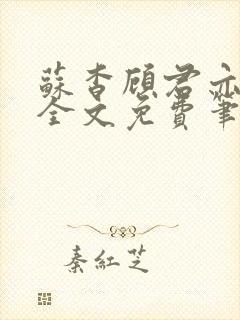 蘇杳顧君亦
全文免費筆
秦紅芝